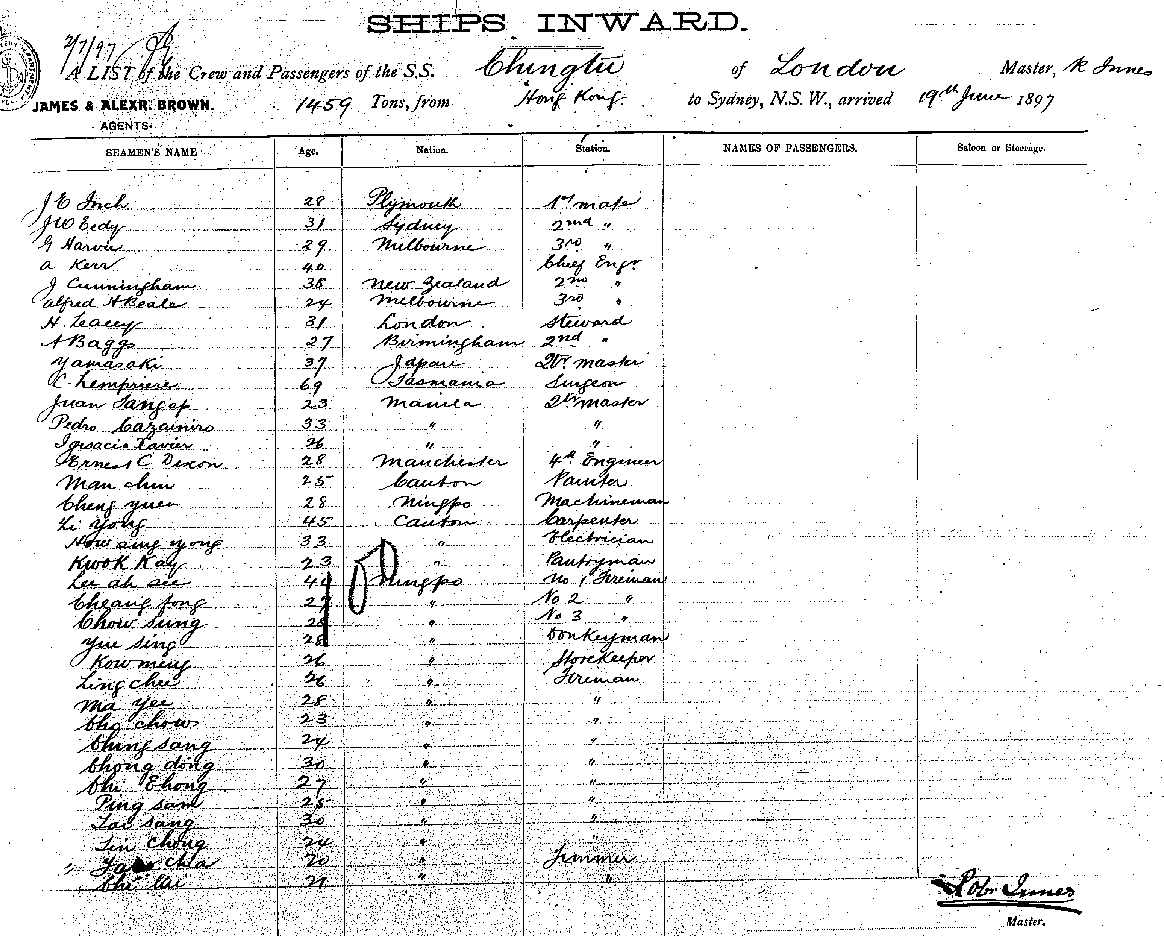 SHIPS INWARD.
2/7/97
A LIST of the Crew and Passengers of the S.S. Chingtu of London Master, R Innes
JAMES & ALEXR. BROWN. 1459 Tons, from Hong Kong. to Sydney, N.S.W., arrived 19th June 1897
AGENTS.
SEAMEN'S NAME Age. Nation. Station. NAMES OF PASSENGERS. Saloon or Steerage.
J E Inch 28 Plymouth 1st mate
J W Eedy 31 Sydney 2nd "
G Harvie 29 Melbourne 3rd "
A Kerr 40 Chief Engr
J Cunningham 38 New Zealand 2nd "
Alfred H Beale 24 Melbourne 3rd "
H. Leacey 31 London Steward
A Baggs 27 Birmingham 2nd "
Yamasaki 37 Japan Qr. Master
C. Lempriere 69 Tasmania Surgeon
Juan 23 Manila Qr Master
Pedro 33 " "
Ignacio Xavier 26 " "
Ernest C Dixon 28 Manchester 4th Engineer
Man chin 25 Canton Painter
Cheng yuen 28 Ningpo Machineman
Li yong 45 Canton Carpenter
How sing yong 33 " Electrician
Kwok Kay 23 " Pantryman
Lee ah see 44 Ningpo No 1 Fireman
Cheang fong 27 " No 2 "
Chow sung 28 " No 3 "
Yue sing 28 " Donkeyman
Kow meng 26 " Storekeeper
Ling chee 26 " Fireman
Ma yee 28 " "
Cho chow 23 " "
Ching sang 24 " "
Chong dong 30 " "
Chi Chong 27 " "
Ping sam 25 " "
Tai sang 30 " "
Sin Chong 24 " "
Chia 20 " Trimmer
Chi Lai 21 " "
Robt Innes
Master.